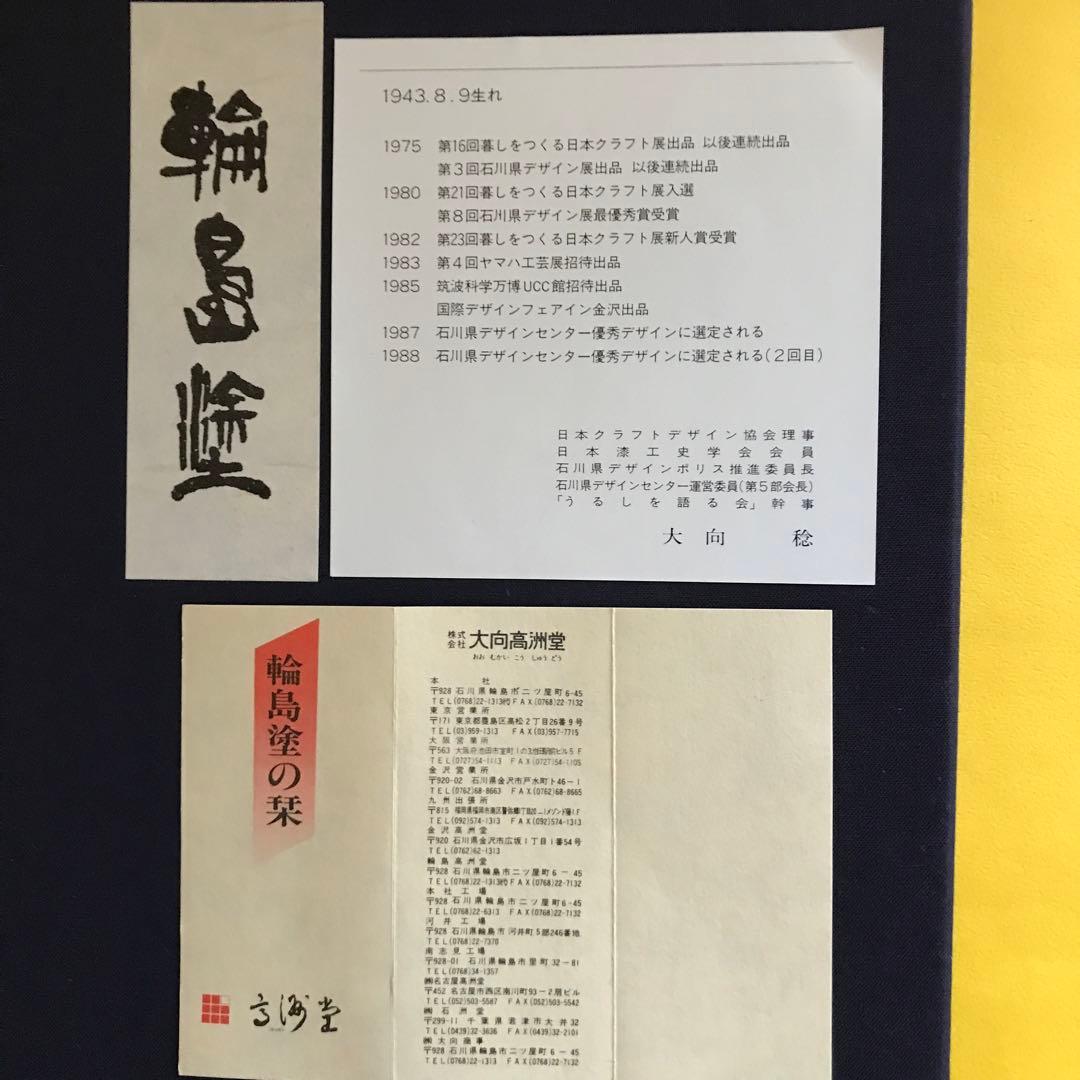 輪島塗
1943.8.9生れ
1975 第16回暮しをつくる日本クラフト展出品 以後連続出品
第3回石川県デザイン展出品 以後連続出品
1980 第21回暮しをつくる日本クラフト展入選
第8回石川県デザイン展最優秀賞受賞
1982 第23回暮しをつくる日本クラフト展新人賞受賞
1983 第4回ヤマハ工芸展招待出品
1985 筑波科学万博UCC館招待出品
国際デザインフェアイン金沢出品
1987 石川県デザインセンター優秀デザインに選定される
1988 石川県デザインセンター優秀デザインに選定される(2回目)
日本クラフトデザイン協会理事
日本漆工史学会会員
石川県デザインポリス推進委員長
石川県デザインセンター運営委員(第5部会長)
「うるしを語る会」幹事
大向 稔
輪島塗の栞
高洲堂
株式会社 大向高洲堂
おおむかいこうしゅうどう
本社
〒928 石川県輪島市二ツ屋町6-45
TEL(0768)22-1313㈹ FAX(0768)22-7132
東京営業所
〒171 東京都豊島区高松2丁目26番9号
TEL(03)959-1313 FAX(03)957-7715
大阪営業所
〒563 大阪府池田市室町1の3池田駅前ビル5F
TEL(0727)54-1113 FAX(0727)54-1105
金沢営業所
〒920-02 石川県金沢市戸水町ト46-1
TEL(0762)68-8663 FAX(0762)68-8665
九州出張所
〒815 福岡県福岡市南区警弥郷1丁目20
TEL(092)574-1313 FAX(092)574-1313
金沢高洲堂
〒920 石川県金沢市広坂1丁目1番54号
TEL(0762)62-1313
輪島高洲堂
〒928 石川県輪島市二ツ屋町6-45
TEL(0768)22-1313㈹ FAX(0768)22-7132
本社工場
〒928 石川県輪島市二ツ屋町6-45
TEL(0768)22-6313 FAX(0768)22-7132
河井工場
〒928 石川県輪島市河井町5部246番地
TEL(0768)22-7370
南志見工場
〒928-01 石川県輪島市里町32-81
TEL(0768)34-1357
㈱名古屋高洲堂
〒452 名古屋市西区南川町93-2層ビル
TEL(052)503-5587 FAX(052)503-5542
㈱石洲堂
〒299-11 千葉県君津市大井32
TEL(0439)32-3636 FAX(0439)32-2101
㈱大向商事
〒928 石川県輪島市二ツ屋町6-45
TEL(0768)22-1313 FAX(0768)22-7132